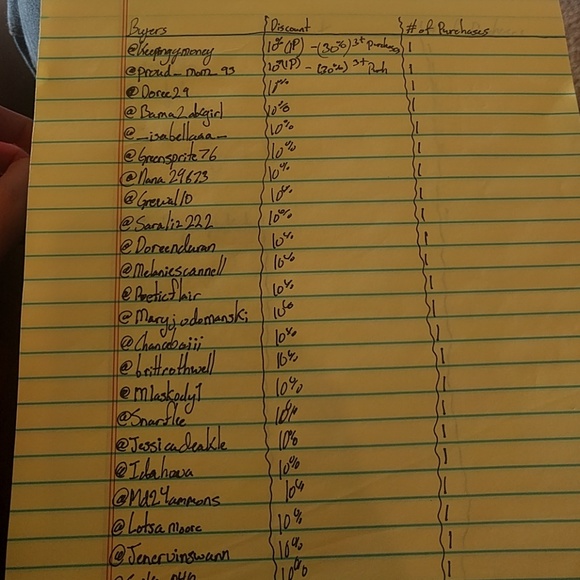 Buyers Discount # of Purchases
@keepingymoney 10% (1P) - (30%) 3+ purchases 1
@proud_mom_93 10% (1P) - (30%) 3+ Purch 1
@Doree29 10% 1
@Bama2abcgirl 10% 1
@_isabellaaa_ 10% 1
@Greensprite76 10% 1
@Nana29673 10% 1
@Grewal10 10% 1
@Saraliz222 10% 1
@Doreenduran 10% 1
@Melaniescannell 10% 1
@Poeticflair 10% 1
@Maryjodomanski 10% 1
@Chancebaiii 10% 1
@brittrothwell 10% 1
@Mlaskody1 10% 1
@Snarflee 10% 1
@Jessicadeakle 10% 1
@Idahowa 10% 1
@Md24ammons 10% 1
@Lotsamoore 10% 1
@Jenervinswann 10% 1
10%